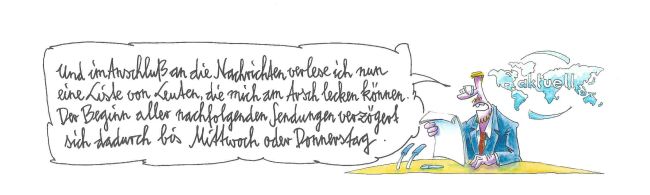 Und im Anschluß an die Nachrichten verlese ich nun
eine Liste von Leuten, die mich am Arsch lecken können.
Der Beginn aller nachfolgenden Sendungen verzögert
sich dadurch bis Mittwoch oder Donnerstag.
aktuell